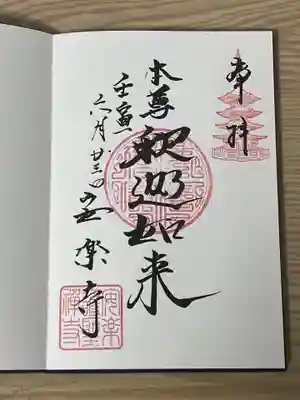 奉拝
本尊
釈迦如来
壬寅
六月廿三日
安楽寺